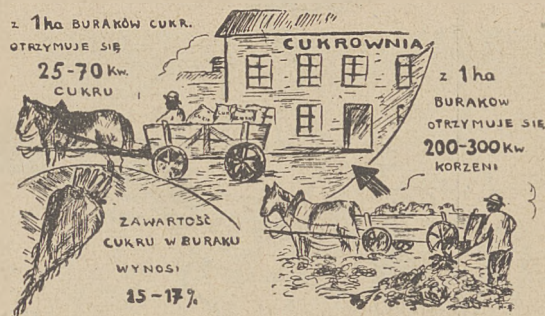 z 1 ha BURAKÓW CUKR.
OTRZYMUJE SIĘ
25-70 Kw.
CUKRU
CUKROWNIA
z 1 ha
BURAKÓW
OTRZYMUJE SIĘ
200-300 Kw
KORZENI
ZAWARTOŚĆ
CUKRU W BURAKU
WYNOSI
15-17%